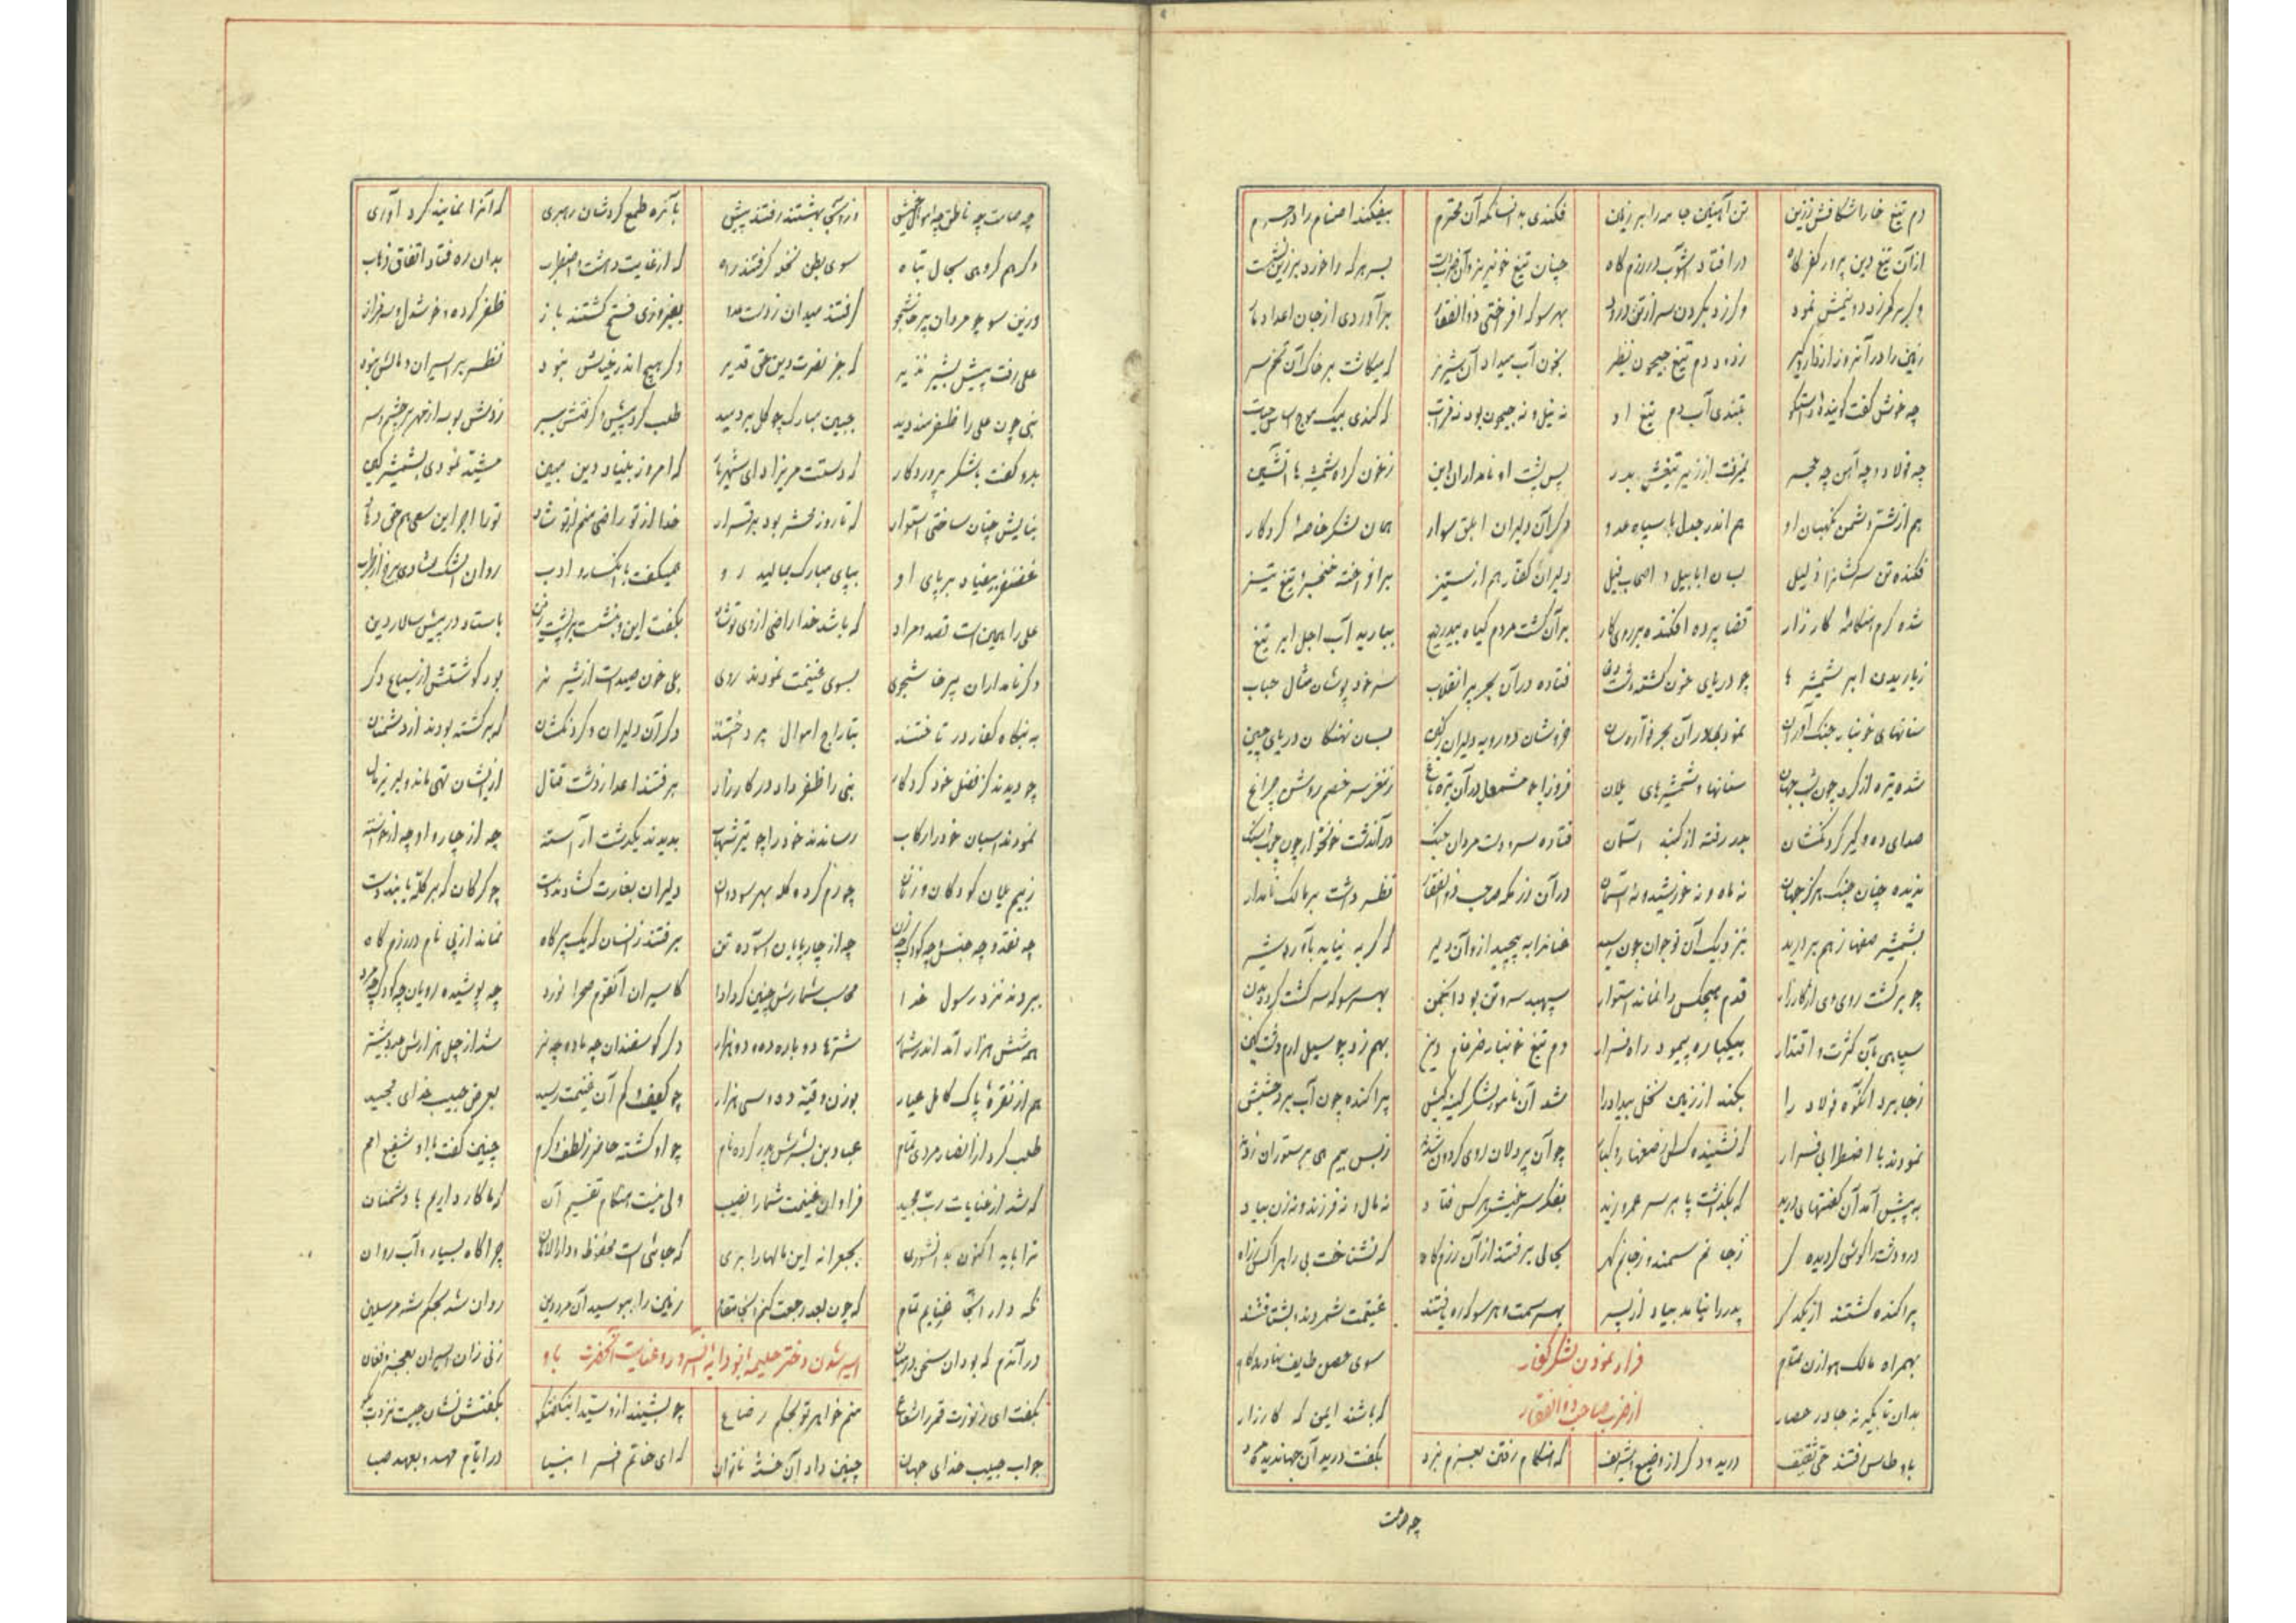 دم تیغ خارا شکافش ززین تن آهنین جامه را بر زمین فکندی بدانسا که آن محترم بیفکند اصنام را در حرم
از آن تیغ دین پرور کفر کاه در افتاد آشوب در رزم گاه چنان تیغ خونریز و آن ضرب دست بسر هر که را خورد بر زین نشست
وگر بر کمر زد دو نیمش نمود وگر زد بگردن سر از تن ربود بهر سو که افراختی ذوالفقار برآوردی از جان اعدا دمار
زمین را در آنروز از دار گیر زدود دم تیغ جیحون نظیر بخون آب میداد آن شیر نر که میکاشت بر خاک آن تخم سر
چه خوش گفت گوینده راستگو بتندی آب دم تیغ او نه نیل و نه جیحون بود نه فرات که کندی بیک موج اساس حیات
چه فولاد و چه آهن چه حجر نمیرفت از زیر تیغش بدر پس پشت او نامداران دین زخون کرده شمشیرها آتشین
هم از شر دشمن نگهبان او هم اندر جدل با سپاه عدو دگر آن دلیران ابلق سوار همان لشکر خاصه کردگار
فکنده تن سرکشان را ذلیل بسان ابابیل و اصحاب فیل دلیران کفار هم از ستیز برافراخته خنجر و تیغ تیز
شده گرم هنگامه کارزار قضا پرده افکنده بر روی کار بر آن کشت مردم گیاه بیدریغ ببارید آب اجل ابر تیغ
زباریدن ابر شمشیرها چو دریای خون گشته دشت فتاده در آن بحر پر انقلاب سر خود پوشان مثال حباب
سنانهای خونبار جنگ آوران نمودی در آن بحر فواره سان خروشان دو رویه دلیران کین بسان نهنگان دریای چین
شده تیره از گرد چون شب جهان سنانها و شمشیرهای یلان فروزان چو مشعل در آن تیره زمغز سر خصم روشن چراغ
صدای ده و گیر گردنکشان بدر رفته از گنبد آسمان فتاده سر و دست مردان جنگ در آندشت خونخوار چون چوب و سنگ
ندیده چنان جنگ هرگز جهان نه ماه و نه خورشید و نه آسمان در آن رزمگه صاحب ذوالفقار نظر داشت بر مالک نامدار
بشمشیر صفها زهم بر درید بنزدیک آن نوجوان چون رسید عنانرا به پیچید ازو آن دلیر که گربه نیاید بآورد شیر
چو برگشت روی وی از کارزار قدم هیچکس را نماند استوار سپهبد سر و تن بود انجمن بهر سو که سر گشت گردد بدن
سپاهی بآن کثرت و اقتدار بیکباره پیمود راه فرار دم تیغ خونبار ضرغام دین بهم زد چو سیل ارم دشت کین
زجا برد آنکوه فولاد را بکند از زمین نخل بیداد را شد آن نامور لشکر کینه کیش پراکنده چون آب بر دخشیش
نمودند با اضطراب فرار که نشنیده کس صفها چو آن پر دلان روی گردون شدند زبس بیم هی بر ستوران زدند
به پیش آمد آن گفتهای درید که بگذشت پا بر سر عمر و زید بفکر سر خویش هر کس فتاد نه مال و نه فرزند و نه زن بیاد
درو دشت را گوش گردیده کر زجا سم سمند و زجا بحالی برفتند از آن رزم گاه که نشناخت بی راهه را کس زراه
پراکنده گشتند از یکدگر پدر را نیامد بیاد از پسر بهر سمت و هر سو که ره یافتند غنیمت شمردند و بشتافتند
بهمراه مالک هوازن تمام سوی حصن طایف نهادند گام
فرار نمودن لشکر کفار
از ضرب صاحب ذوالفقار
بدان تا بگیرند جا در حصار که باشند ایمن که کارزار
باوطاس رفتند حی ثقیف درید و دگر از وضیع و شریف که هنگام رفتن بعزم نبرد بگفت درید آن جهاندیده مرد
چه صامت
چه صامت چه ناطق چه اموال خویش در آنجا بهشتند و رفتند پیش بآنره طمع کردشان رهبری که آنرا نمایند گرد آوری
دگر هم گروهی بحال تباه سوی بطن نخله گرفتند راه که از غایت دهشت و اضطراب بدان ره فتاد اتفاق ذهاب
وزین سو چو مردان پرخاشجو گرفتند میدان زدست عدو بفیروزی فتح گشتند باز ظفر کرده و خوشدل و سرفراز
علی رفت پیش بشیر نذیر که جز نصرت دین حق قدیر دگر هیچ اندر خیالش نبود نظر بر اسیران و مالش نبود
نبی چون علی را ظفرمند دید جبین مبارک چو گل بردمید طلب کرد پیش و گرفتش ببر زدش بوسه از مهر بر چشم و سر
بدو گفت با شکر پروردگار که دستت مریزاد ای شهریار که امروز بنیاد دین مبین مشید نمودی بشمشیر کین
بنایش چنان ساختی استوار که تا روز محشر بود برقرار خدا از تو راضی منم از تو شاد تورا اجر این سعی هم حق دهاد
غضنفر بیفتاد بر پای او بپای مبارک بمالید رو همیگفت با انکسار و ادب روان اشک شادی
علی را همین است قصد و مراد که باشد خدا راضی از وی تو شاد بگفت این و بنشست بر باستاد در پیش سالار دین
دگر نامداران پرخاشجوی بسوی غنیمت نمودند روی بلی خون صید است از شیر نر بود گوشتش از سباع دگر
به بنگاه کفار در تاختند بتاراج اموال پرداختند دگر آن دلیران و گردنکشان که برگشته بودند از دشمنان
چو دیدند کز فضل خود کردگار نبی را ظفر داد در کارزار برفتند اعدا زدشت قتال از ایشان تهی ماند و لبریز مال
نمودند اسبان خود را رکاب رساندند خود را چو تیر شهاب بدیدند یکدشت آراسته چه از چاروا و چه از خواسته
زبیم یلان کودکان و زنان چو رم کرده گله بهر سو دوان دلیران بغارت گشادند دست چو گرگان که بر گله یابند دست
چه نقد و چه جنس و چه کودک چه زن چه از چارپایان آسوده تن ببرفتند زانسان که یک پر کاه نماند از پی نام در رزم گاه
ببردند نزد رسول خدا محاسب شمارش چنین کرد ادا کاسیران آنقوم صحرا نورد چه پوشیده رویان چه کودک چه مرد
همه شش هزار آمد اندر شمار شترها دو باره ده و دو هزار دگر گوسفندان چه ماده چه نر شد از چل هزارش عدد بیشتر
هم از نقره پاک کامل عیار بوزن وقیه ده و سی هزار چو کیف و کم آن غنیمت رسید بعرض حبیب خدای مجید
طلب کرد از انصار مردی تمام عباد بن بشرش پدر کرده نام چو او گشت حاضر زلطف و کرم چنین گفت با او شفیع امم
که شد از عنایات رب مجید فراوان غنیمت شما را نصیب ولی نیست هنگام تقسیم آن که ما کار داریم با دشمنان
ترا باید اکنون به دانشوری بجعرانه این مالها را بری که جائی است محفوظ و دارالامان چراگاه بسیار و آب روان
نگه دار آنجا غنایم تمام که چون بعد رجعت کنم آنجا مقام زمین را ببوسید آن مرد دین روان شد بحکم شه مرسلین
در آندم که بود آن سخن در میان زنی زان اسیران بعجز و فغان
اسیر شدن دختر حلیمه بانو دایه آنسرور و عنایت آنحضرت باو
بگفت ای زنورت قمر را شعاع منم خواهر تو بحکم رضاع چو بشنید ازو سید بگفتش نشان چیست
جواب حبیب خدای جهان چنین داد آن خسته ناتوان که ای خاتم و افسر انبیا در ایام مهد و بعهد صبا